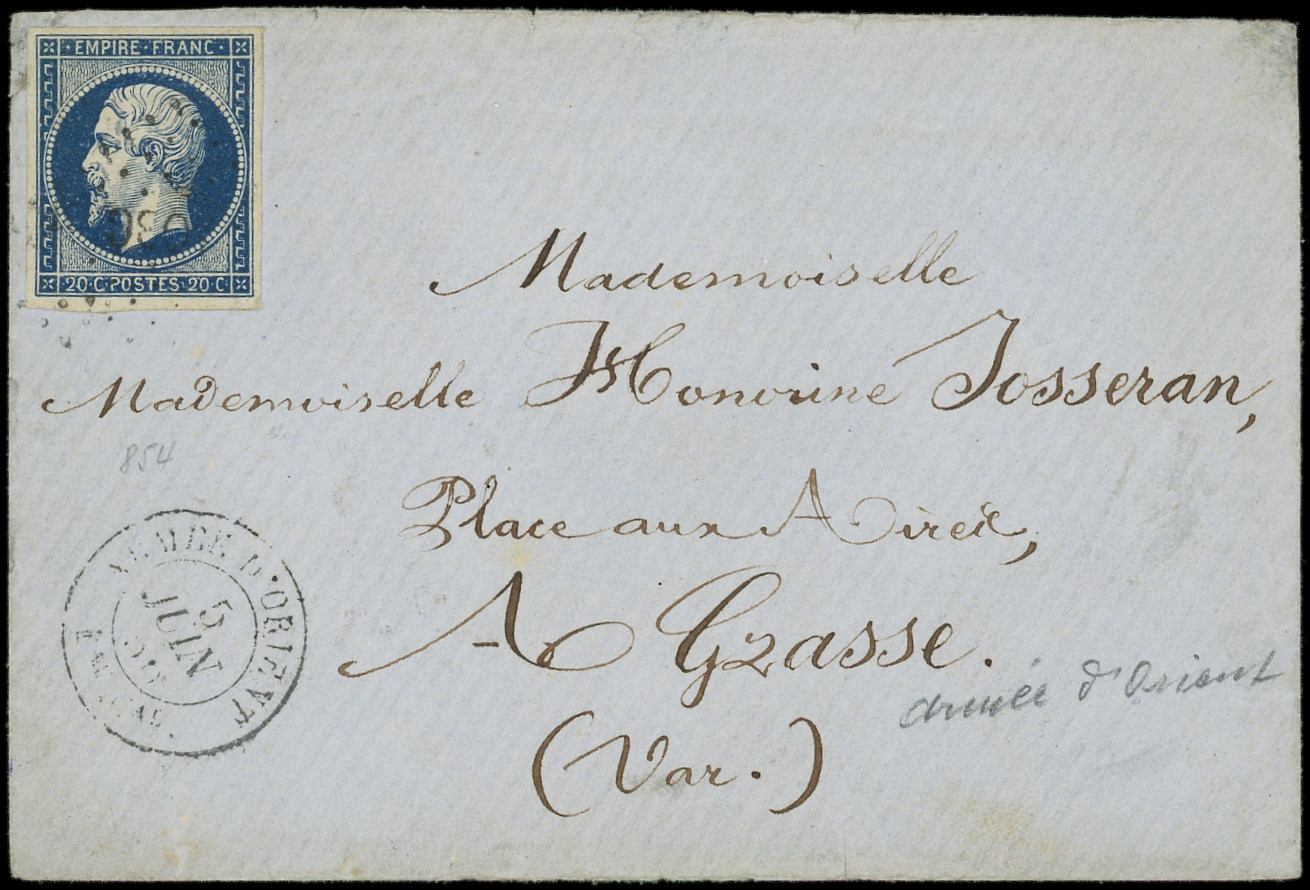 EMPIRE · FRANC
20·C·POSTES·20·C·
Mademoiselle
Mademoiselle Honorine Josseran,
854
Place aux Aires,
A Grasse.
(Var.)
armée d'Orient
ARMEE D'ORIENT
5
JUIN